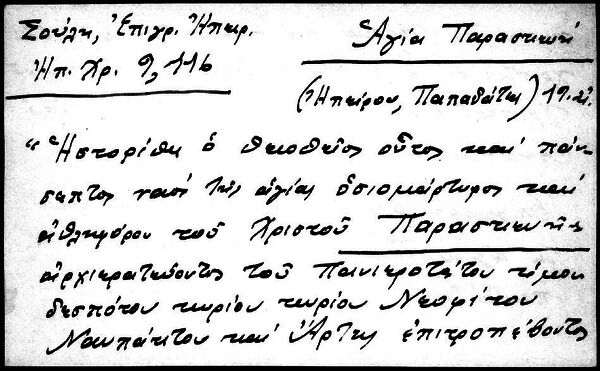 Σούλη, Ἐπιγρ. Ἠπειρ.
Ἁγία Παρασκευή
Ἠπ. Χρ. 9, 116
(Ἠπείρου, Παπαδάτες)
"Ἡστορίθη ὁ θεῖος οὗτος καί πάν-
σεπτος ναός τῆς ἁγίας ὁσιομάρτυρος καί
ἀθληφόρου τοῦ Χριστοῦ Παρασκευῆς
ἀρχιερατεύοντος τοῦ Πανιεροτάτου τιμου
δεσπότου κυρίου κυρίου Νεοφίτου
Ναυπάκτου καί Ἄρτης ἐπιτροπέβοντος